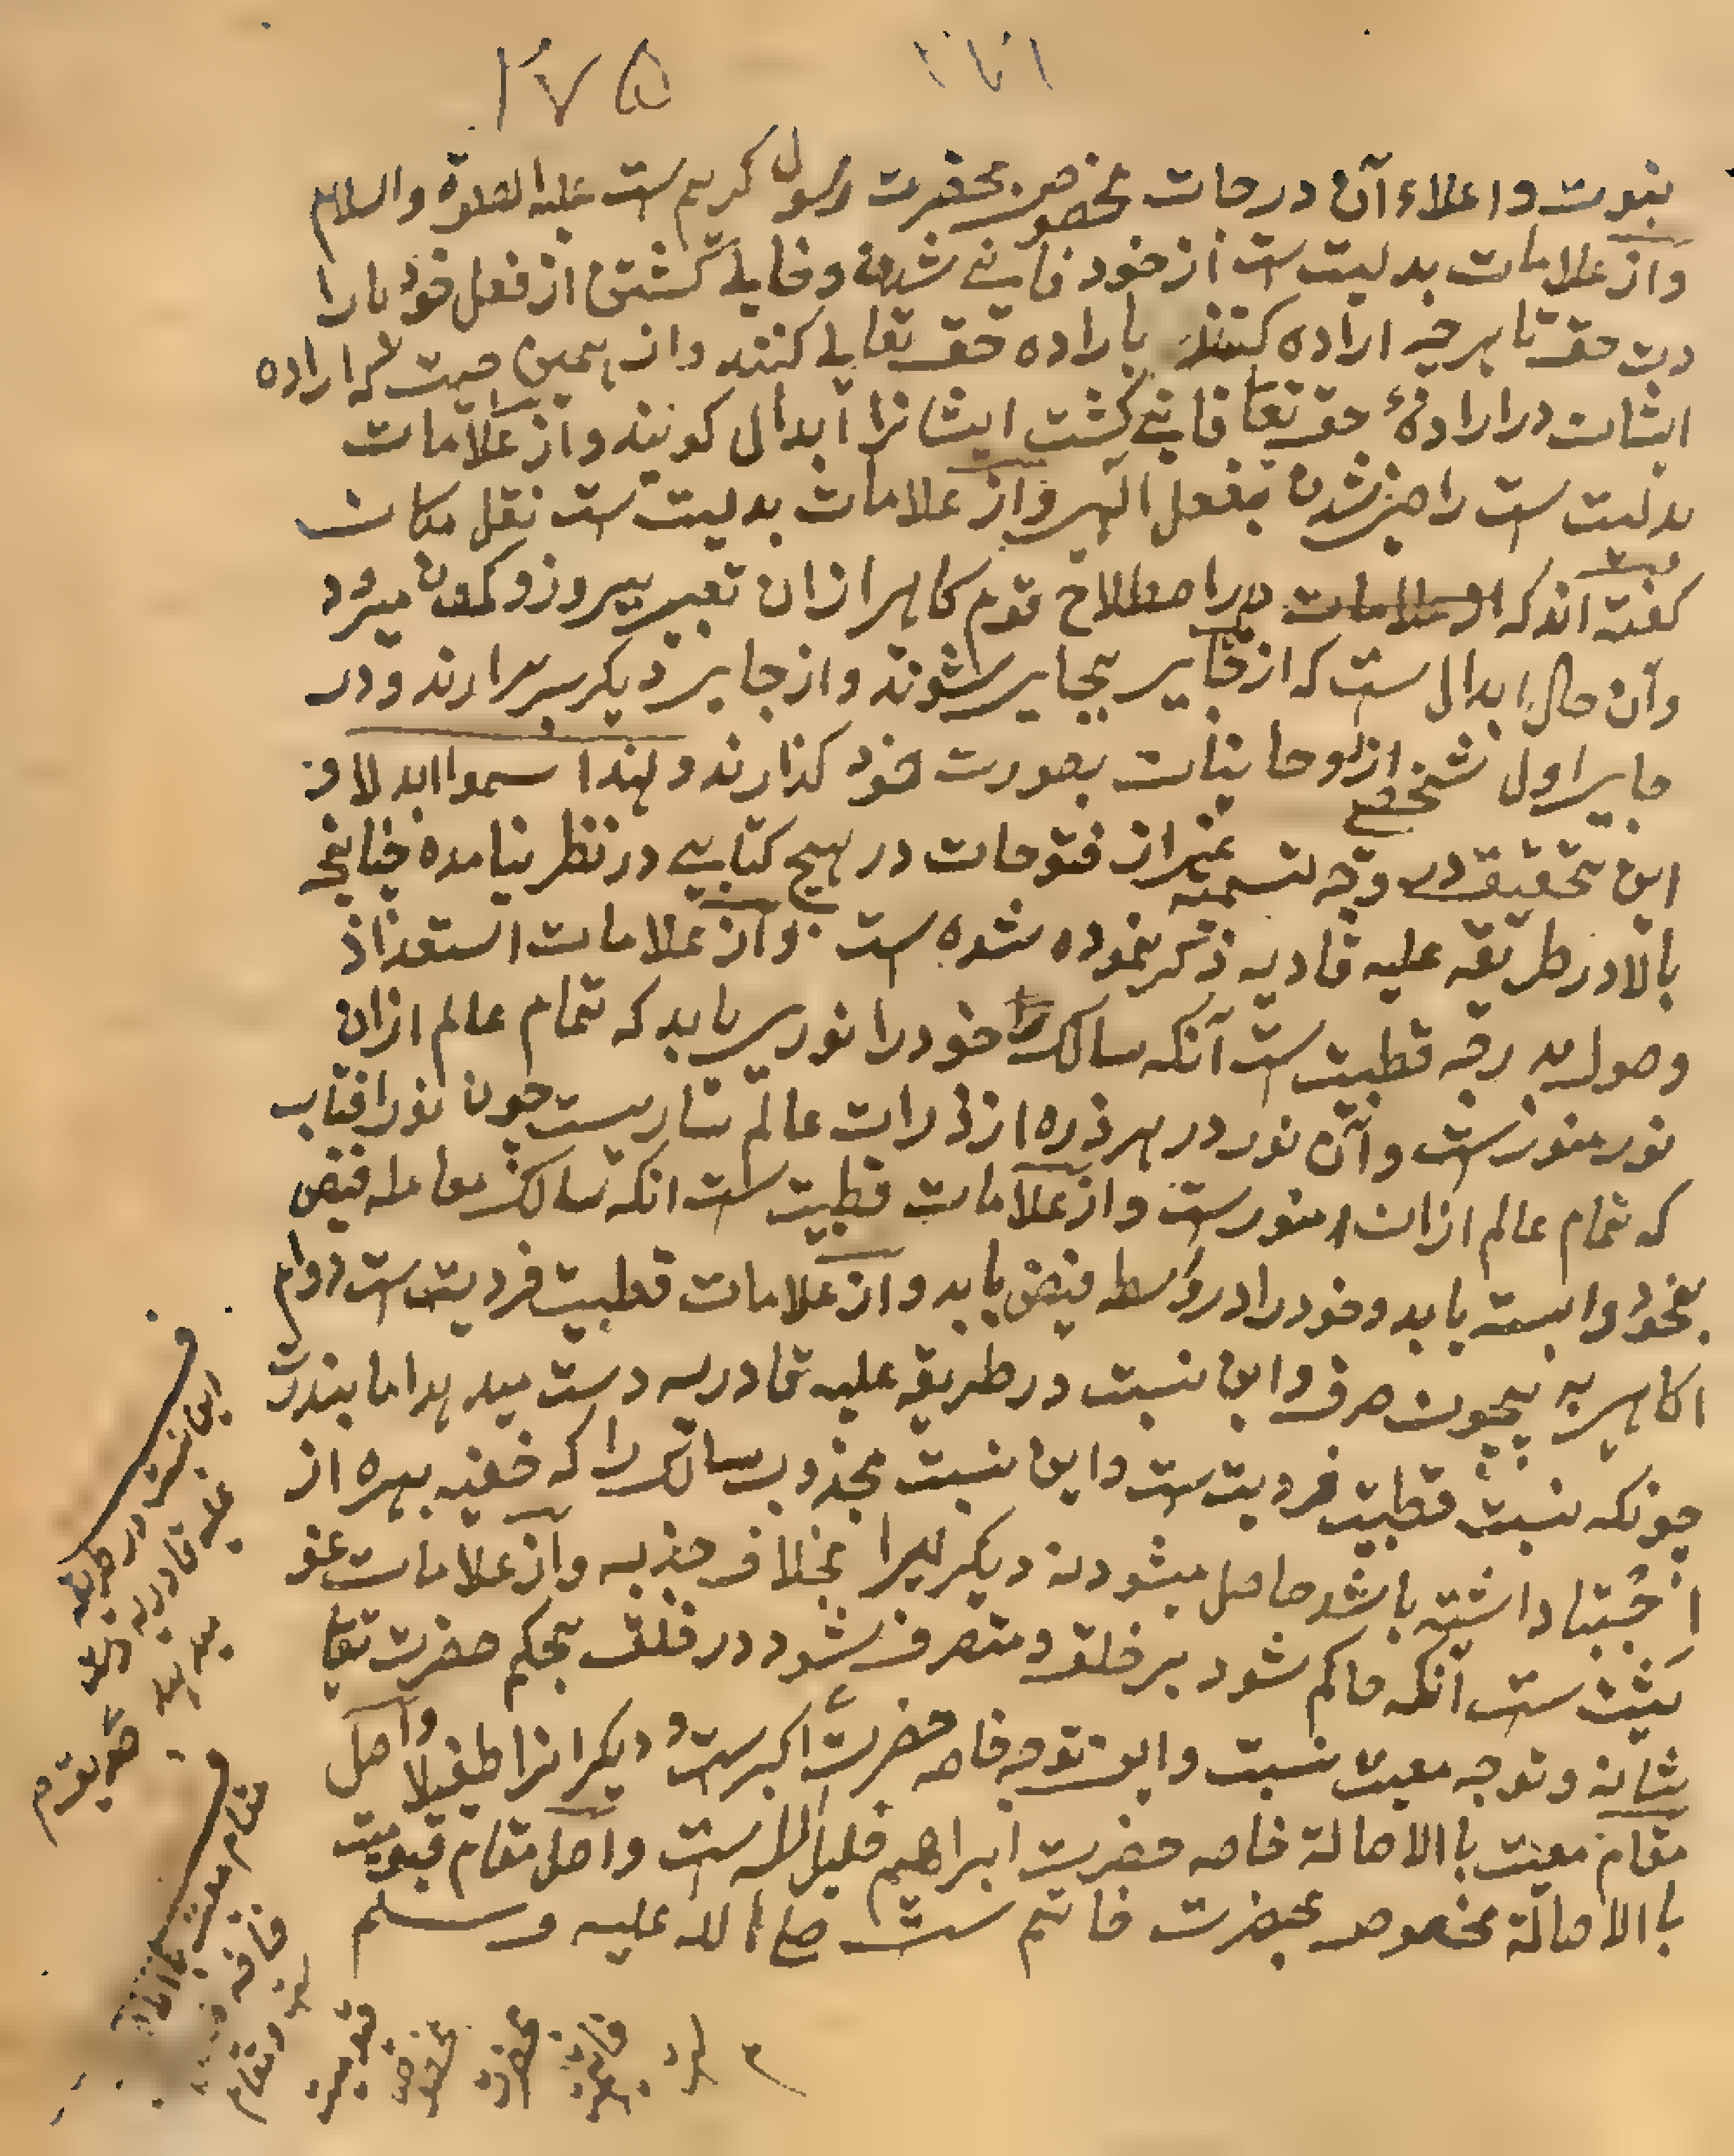 ١٧٥
نبوت و اعلاء آن درجات مخصوص بحضرت رسول کریم ست علیه الصلوة والسلام
و از علامات بدلیت ست از خود فانی شدن و خالی گشتن از فعل خود
حق تا هرچه اراده کنند باراده حق تعالی کنند و از همین جهت که اراده
ایشان در اراده حق تعا فانی گشت ایشانرا ابدال گویند و از علامات
بدلیت ست راضی شدن بفعل الهی و از علامات بدلیت ست نقل مکان
گفته اند که در اصطلاح قوم گاهی ازان تعبیر ببروز و کمون میرود
و آن حال ابدال ست که از جایی بجایی شوند و از جایی دیگر سر برارند و در
جایی اول شخصی از روحانیات بصورت خود گذارند و لهذا سموا ابدلا و
این تحقیق در وجه تسمیه غیر از فتوحات در هیچ کتابی در نظر نیامده چنانچه
بالا در طریقه علیه قادریه ذکر نموده شده ست و از علامات استعداد
وصول بدرجه قطبیت ست آنکه سالک خود را نوری یابد که تمام عالم ازان
نور منور ست و آن نور در هر ذره از ذرات عالم ساریست چون نور افتاب
که تمام عالم ازان منور ست و از علامات قطبیت ست انکه سالک معامله فیض
بخود وابسته یابد و خود را در واسطه فیض یابد و از علامات قطبیت فردیت ست دوام
اگاهی به بیچون صرف و این نسبت در طریقه علیه قادریه دست میدهد اما بندرت
چونکه نسبت قطبیت فردیت ست و این نسبت مجذوب سالک را که خفیه بهره از
اجتبا داشته باشد حاصل میشود نه دیگریرا بخلاف جذبه و از علامات غو
ثیت ست آنکه حاکم شود بر خلق و متصرف شود در خلق بحکم حضرت تعا
شانه و توجه معیت نسبت و این توجه خاصه حضرت اکبر ست و دیگرانرا طفیلا و اصل
مقام معیت بالاصالة خاصه حضرت ابراهیم خلیل الله ست و اصل مقام قیومیت
بالاصالة مخصوص بحضرت خاتم ست صلی الله علیه وسلم
این نسبت در طریقه
علیه قادریه
مقام معیت
مقام
قیومیت
مخصوص
بحضرت